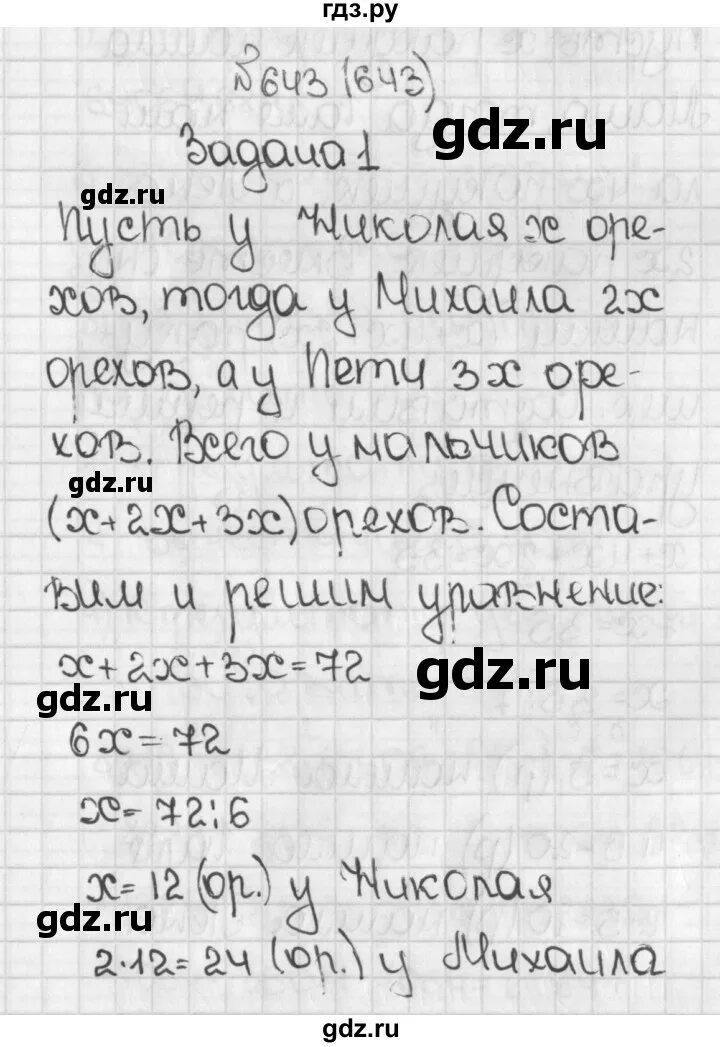 гдз.ру
№643 (643)
gdz.ru
Задача 1
gdz.ru
Пусть у Николая х оре-
хов, тогда у Михаила 2х
орехов, а у Пети 3х оре-
хов. Всего у мальчиков
gdz.ru
(х+2х+3х) орехов. Соста-
вим и решим уравнение:
х+2х+3х=72
gdz.ru
gdz.ru
6х=72
х=72:6
х=12 (ор.) у Николая
gdz.ru
2·12=24 (ор.) у Михаила
gdz.ru